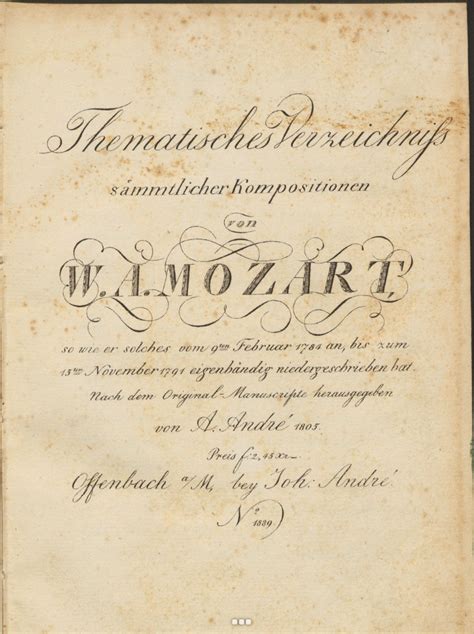 Thematisches Verzeichniſs
sämmtlicher Kompositionen
von
W. A. MOZART,
so wie er solches vom 9ten Februar 1784 an, bis zum
15ten November 1791 eigenhändig niedergeschrieben hat.
Nach dem Original-Manuscripte herausgegeben
von A. André 1805.
Preis f: 2, 45 xr
Offenbach a/M, bey Joh: André.
No 1889